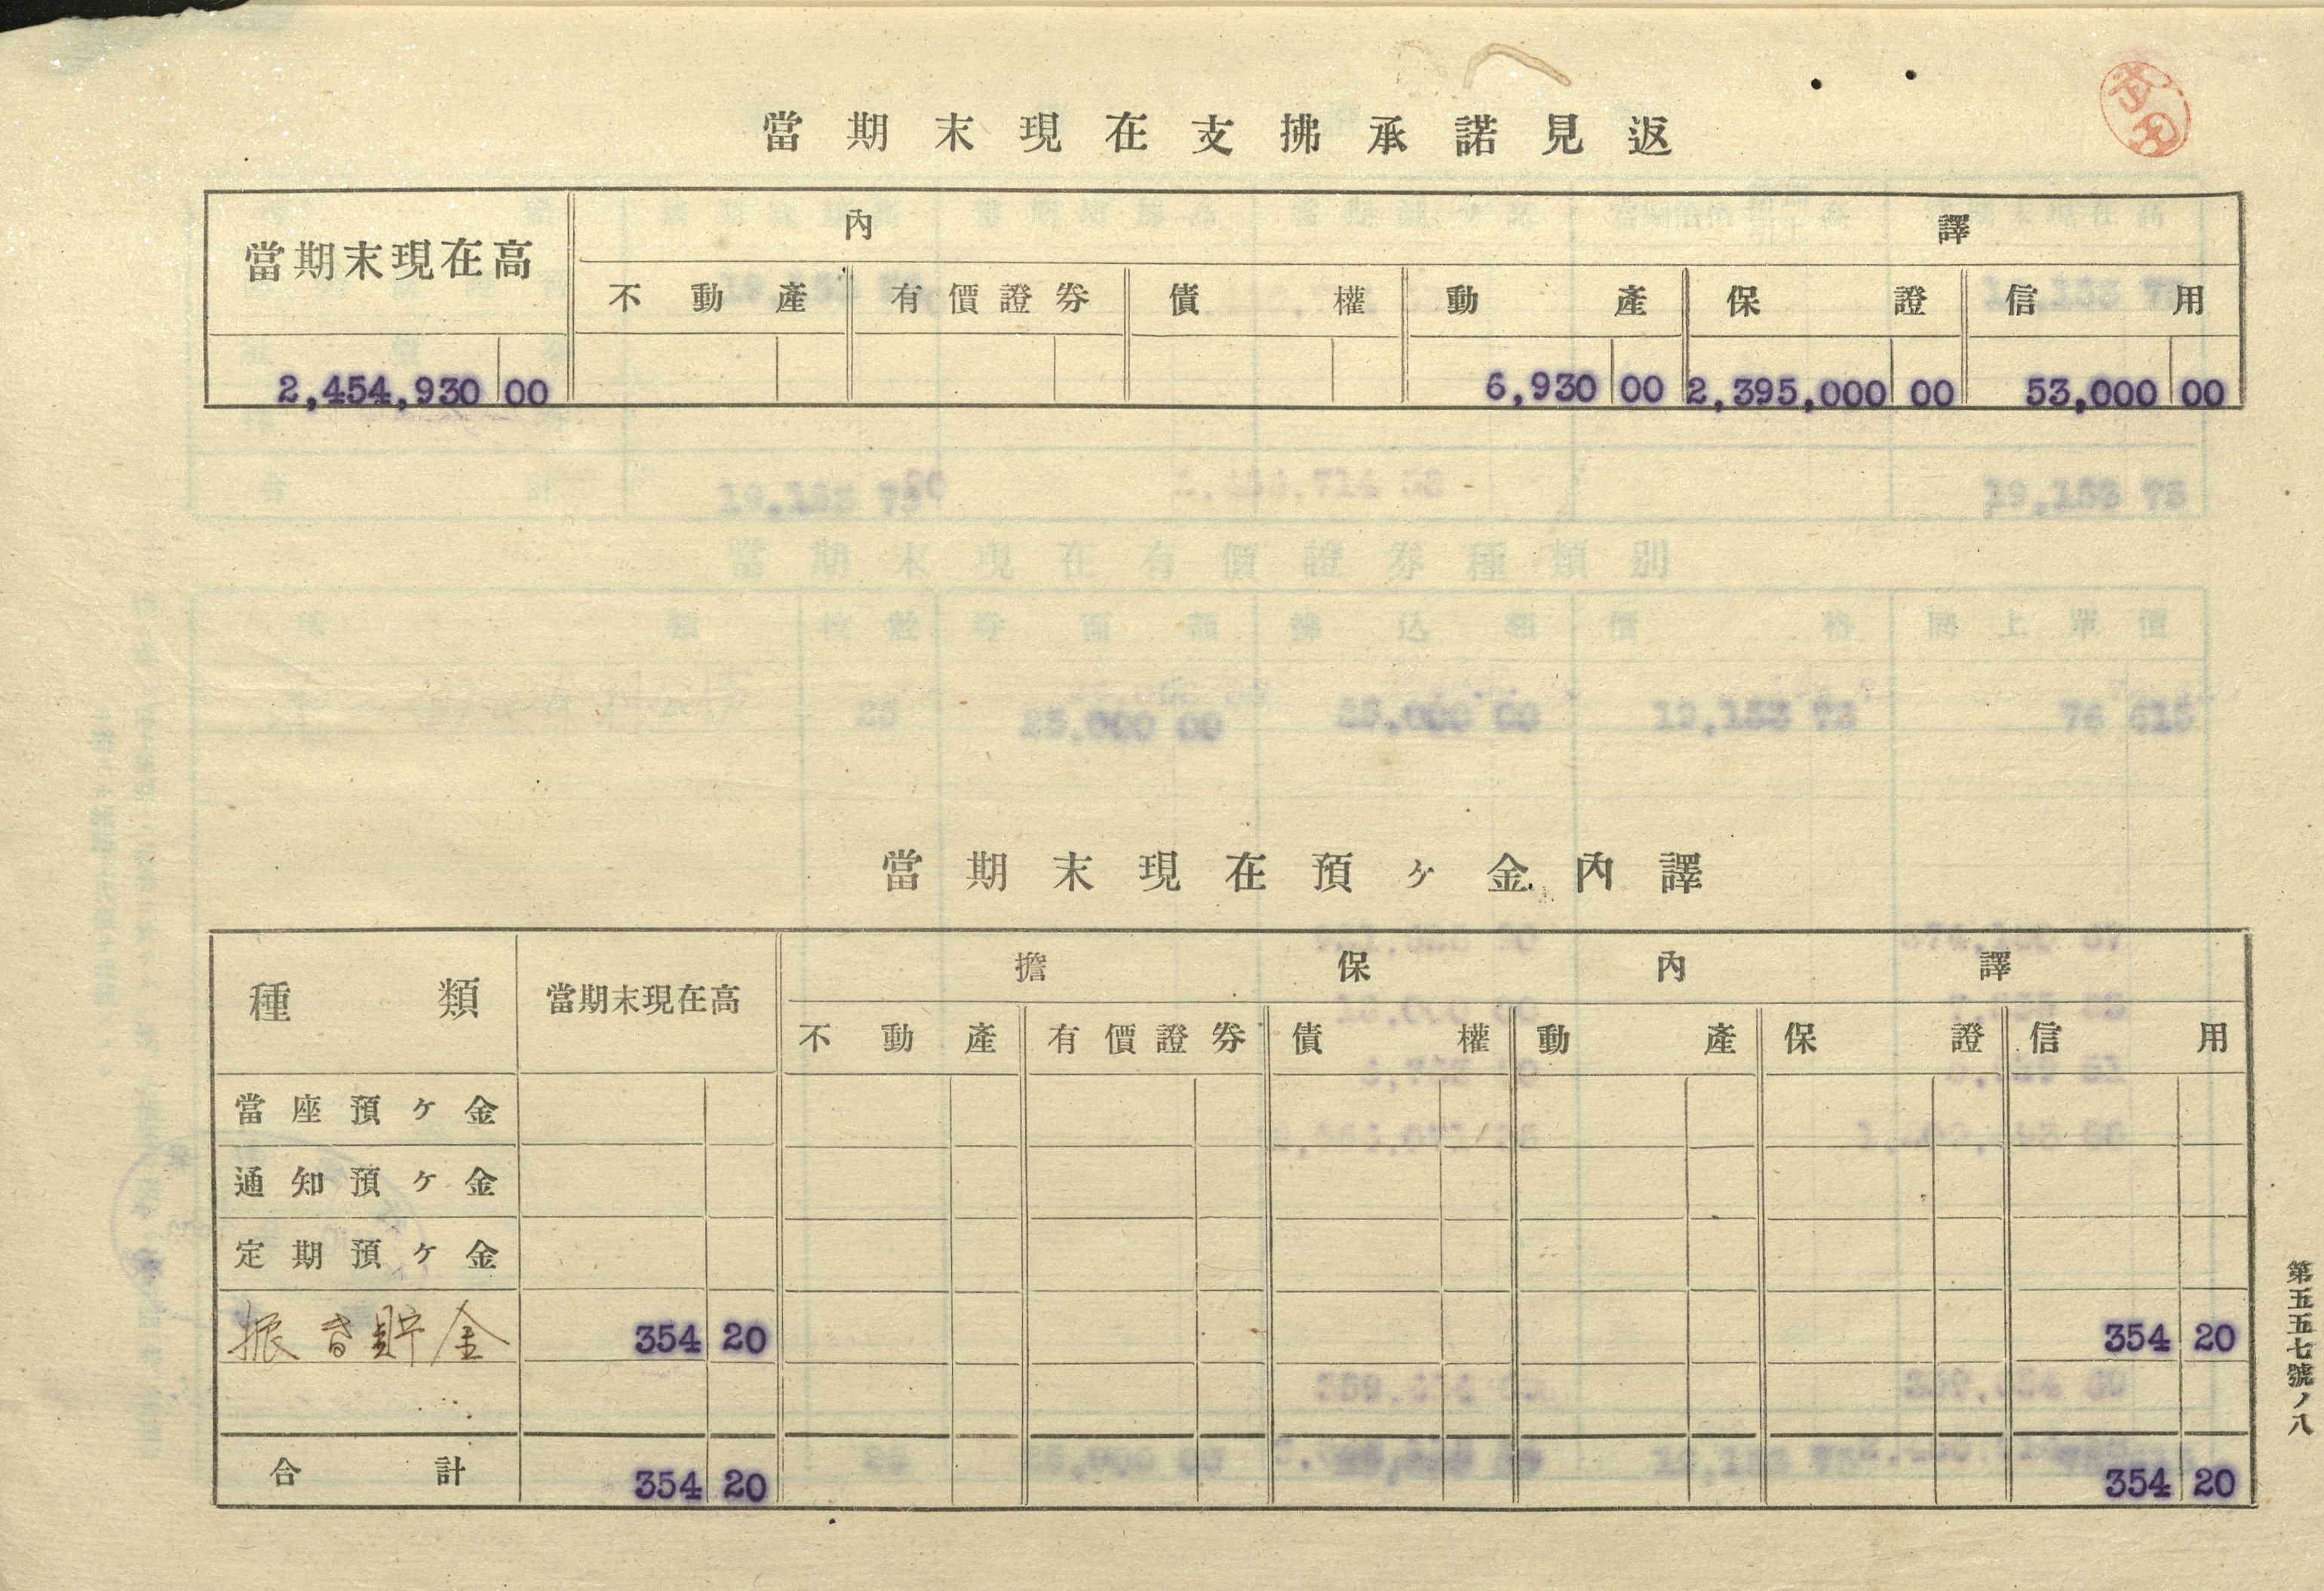 當期末現在支拂承諾見返
當期末現在高 內譯
不動產 有價證券 債權 動產 保證 信用
2,454,930 00 6,930 00 2,395,000 00 53,000 00
當期末現在預ヶ金內譯
種類 當期末現在高 擔保內譯
不動產 有價證券 債權 動產 保證 信用
當座預ケ金
通知預ケ金
定期預ケ金
振替貯金 354 20 354 20
合計 354 20 354 20
第五五七號ノ八